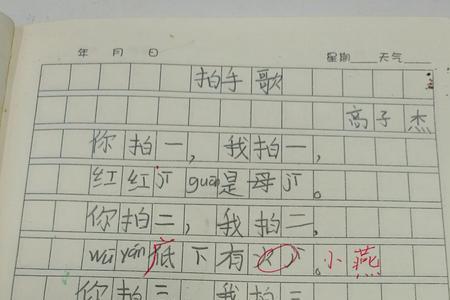 年 月 日 星期____天气____
拍手歌
高子杰
你拍一，我拍一，
红红jī guān是母jī。
你拍二，我拍二，
wū yán底下有 。小燕
你拍三 我拍三